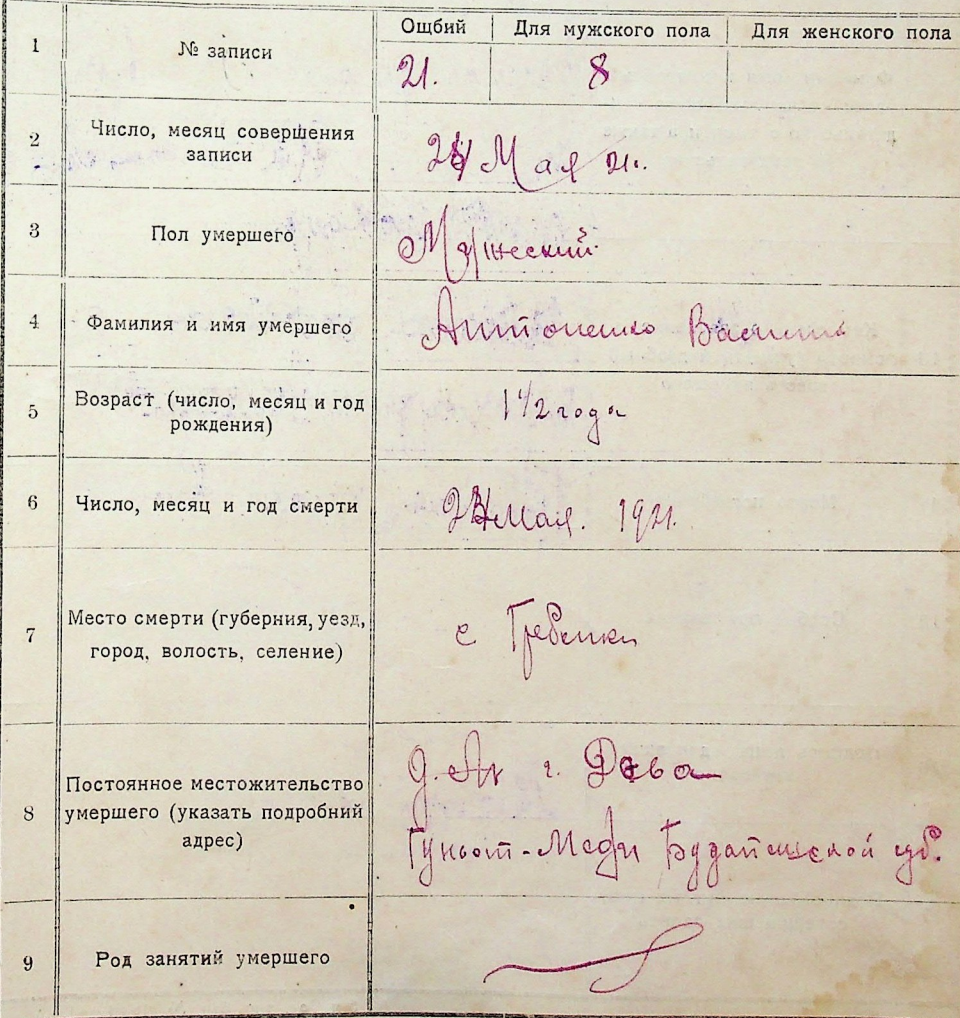 Ощбий | Для мужского пола | Для женского пола
1 № записи 21. 8
2 Число, месяц совершения
записи
24 Мая 21г.
3 Пол умершего Мужеский
4 Фамилия и имя умершего Антоненко Василий
5 Возраст (число, месяц и год
рождения)
1 1/2 года
6 Число, месяц и год смерти Мая. 1921.
7 Место смерти (губерния, уезд,
город, волость, селение)
с Гребенки
8 Постоянное местожительство
умершего (указать подробний
адрес)
г. Дева
Гуньот-Меди Будапешской губ.
9 Род занятий умершего